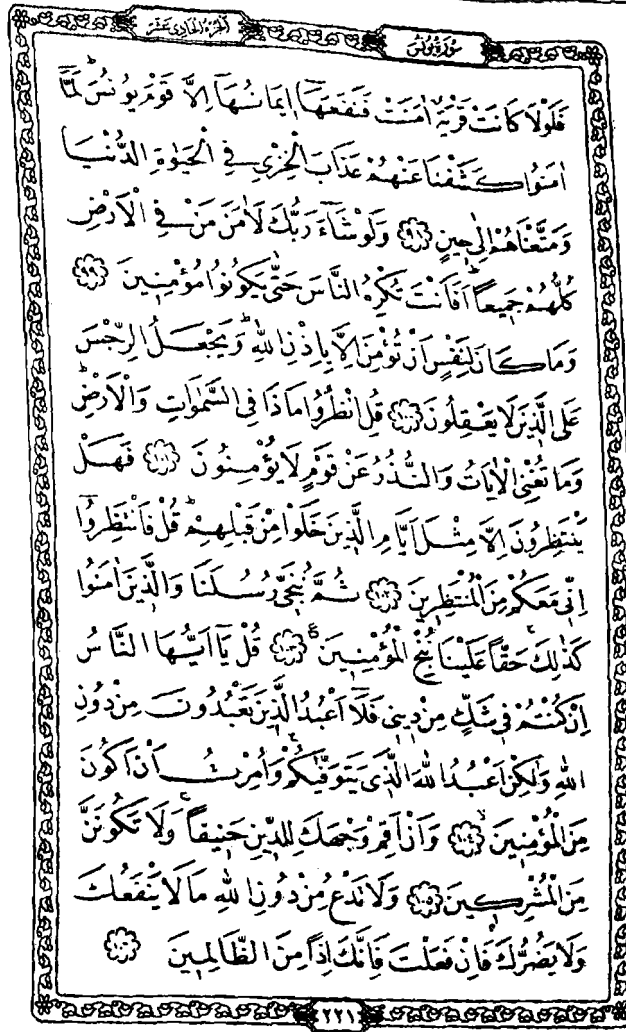 سُورَةُ يُونُسَ
الجُزْءُ الحَادِي عَشَرَ
فَلَوْلَا كَانَتْ قَرْيَةٌ اٰمَنَتْ فَنَفَعَهَٓا ا۪يمَانُهَٓا اِلَّا قَوْمَ يُونُسَۜ لَمَّٓا
اٰمَنُوا كَشَفْنَا عَنْهُمْ عَذَابَ الْخِزْيِ فِي الْحَيٰوةِ الدُّنْيَا
وَمَتَّعْنَاهُمْ اِلٰى ح۪ينٍ ﴿٩٨﴾ وَلَوْ شَٓاءَ رَبُّكَ لَاٰمَنَ مَنْ فِي الْاَرْضِ
كُلُّهُمْ جَم۪يعًاۜ اَفَاَنْتَ تُكْرِهُ النَّاسَ حَتّٰى يَكُونُوا مُؤْمِن۪ينَ ﴿٩٩﴾
وَمَا كَانَ لِنَفْسٍ اَنْ تُؤْمِنَ اِلَّا بِاِذْنِ اللّٰهِۜ وَيَجْعَلُ الرِّجْسَ
عَلَى الَّذ۪ينَ لَا يَعْقِلُونَ ﴿١٠٠﴾ قُلِ انْظُرُوا مَاذَا فِي السَّمٰوَاتِ وَالْاَرْضِۜ
وَمَا تُغْنِي الْاٰيَاتُ وَالنُّذُرُ عَنْ قَوْمٍ لَا يُؤْمِنُونَ ﴿١٠١﴾ فَهَلْ
يَنْتَظِرُونَ اِلَّا مِثْلَ اَيَّامِ الَّذ۪ينَ خَلَوْا مِنْ قَبْلِهِمْۜ قُلْ فَانْتَظِرُٓوا
اِنّ۪ي مَعَكُمْ مِنَ الْمُنْتَظِر۪ينَ ﴿١٠٢﴾ ثُمَّ نُنَجّ۪ي رُسُلَنَا وَالَّذ۪ينَ اٰمَنُوا
كَذٰلِكَۚ حَقًّا عَلَيْنَا نُنْجِ الْمُؤْمِن۪ينَ ﴿١٠٣﴾ قُلْ يَٓا اَيُّهَا النَّاسُ
اِنْ كُنْتُمْ ف۪ي شَكٍّ مِنْ د۪ين۪ي فَلَٓا اَعْبُدُ الَّذ۪ينَ تَعْبُدُونَ مِنْ دُونِ
اللّٰهِ وَلٰكِنْ اَعْبُدُ اللّٰهَ الَّذ۪ي يَتَوَفّٰيكُمْۚ وَاُمِرْتُ اَنْ اَكُونَ
مِنَ الْمُؤْمِن۪ينَۙ ﴿١٠٤﴾ وَاَنْ اَقِمْ وَجْهَكَ لِلدّ۪ينِ حَن۪يفًاۚ وَلَا تَكُونَنَّ
مِنَ الْمُشْرِك۪ينَ ﴿١٠٥﴾ وَلَا تَدْعُ مِنْ دُونِ اللّٰهِ مَا لَا يَنْفَعُكَ
وَلَا يَضُرُّكَۚ فَاِنْ فَعَلْتَ فَاِنَّكَ اِذًا مِنَ الظَّالِم۪ينَ ﴿١٠٦﴾
٢٢١